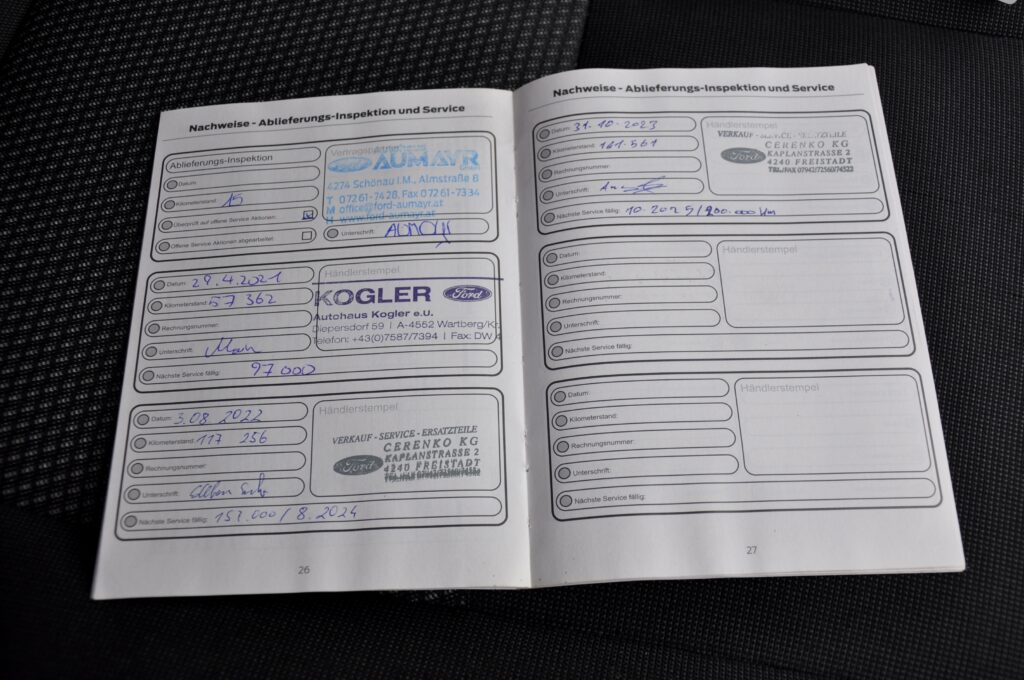 Nachweise - Ablieferungs-Inspektion und Service
Ablieferungs-Inspektion
Datum:
Kilometerstand: 15
Überprüft auf offene Service Aktionen:
Offene Service Aktionen abgearbeitet:
AUMAYR
4274 Schönau i.M., Almstraße 8
T 07261-7428, Fax 07261-7334
M office@ford-aumayr.at
H www.ford-aumayr.at
Unterschrift:
Datum: 29.4.2021
Kilometerstand: 57 362
Rechnungsnummer:
Unterschrift:
Nächste Service fällig: 97 000
Händlerstempel
KOGLER Ford
Autohaus Kogler e.U.
Diepersdorf 59 | A-4552 Wartberg/Kr.
Telefon: +43(0)7587/7394 | Fax: DW
Datum: 3.08 2022
Kilometerstand: 117 256
Rechnungsnummer:
Unterschrift:
Nächste Service fällig: 157.000/8.2024
Händlerstempel
VERKAUF - SERVICE - ERSATZTEILE
Ford
CERENKO KG
KAPLANSTRASSE 2
4240 FREISTADT
26
Nachweise - Ablieferungs-Inspektion und Service
Datum: 31.10.2023
Kilometerstand: 161.561
Rechnungsnummer:
Unterschrift:
Nächste Service fällig: 10.2025/200.000 km
Händlerstempel
VERKAUF - SERVICE - ERSATZTEILE
Ford
CERENKO KG
KAPLANSTRASSE 2
4240 FREISTADT
TEL./FAX 07942/72560/74522
Datum:
Kilometerstand:
Rechnungsnummer:
Unterschrift:
Nächste Service fällig:
Händlerstempel
Datum:
Kilometerstand:
Rechnungsnummer:
Unterschrift:
Nächste Service fällig:
Händlerstempel
27